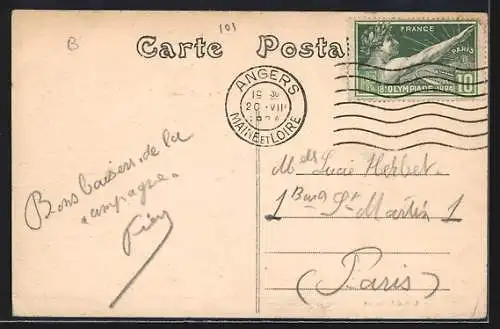 B
101
Carte Posta
FRANCE
PARIS
8e OLYMPIADE 1924
10
ANGERS
20 VII
1924
MAINE ET LOIRE
Bons baisers de la
campagne
Lucie Herbet
1 Bard St Martin 1
(Paris)